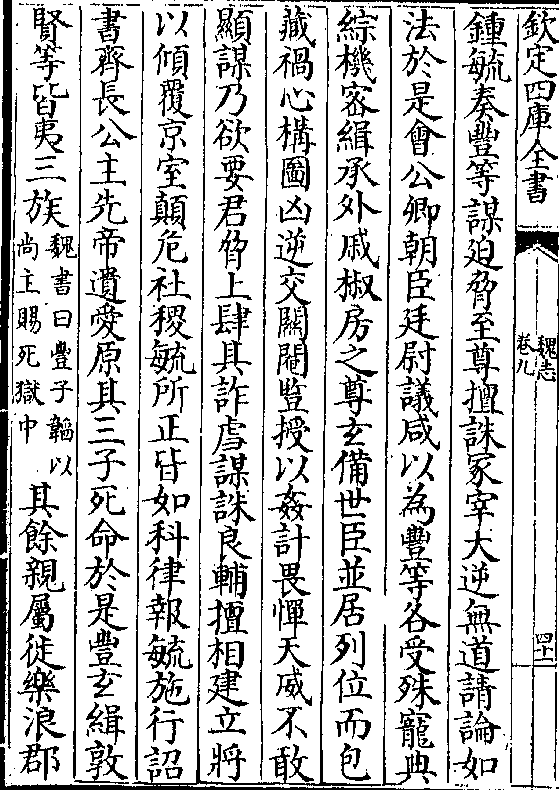 欽定四庫全書
魏志
卷九
四十一
鍾毓奏豐等謀迫脅至尊擅誅冡宰大逆無道請論如
法於是會公卿朝臣廷尉議咸以為豐等各受殊寵典
綜機密緝承外戚椒房之尊玄備世臣並居列位而包
藏禍心構圖凶逆交關閹豎授以姦計畏憚天威不敢
顯謀乃欲要君脅上肆其詐虐謀誅良輔擅相建立將
以傾覆京室顛危社稷毓所正皆如科律報毓施行詔
書齊長公主先帝遺愛原其三子死命於是豐玄緝敦
賢等皆夷三族
魏書曰豐子韜以
尚主賜死獄中
其餘親屬徙樂浪郡